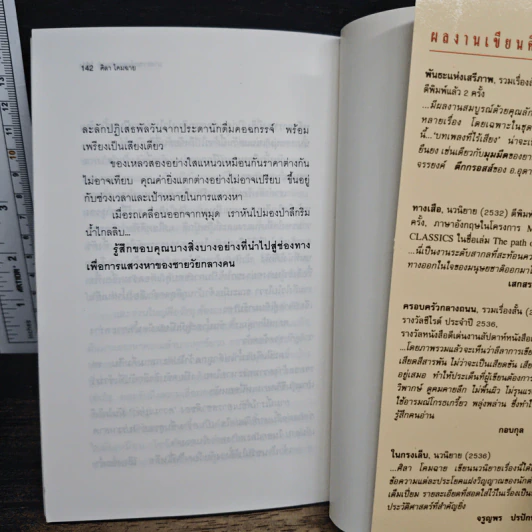 142 ศิลา โคมฉาย
ละลักปฏิเสธพัลวันจากประดานักดื่มคอฉกรรจ์ พร้อม
เพรียงเป็นเสียงเดียว
ของเหลวสองอย่างใสแหนวเหมือนกันราคาต่างกัน
ไม่อาจเทียบ คุณค่ายิ่งแตกต่างอย่างไม่อาจเปรียบ ขึ้นอยู่
กับช่วงเวลาและเป้าหมายในการแสวงหา
เมื่อรถเคลื่อนออกจากพุมุด เราหันไปมองป่าลึกริม
น้ำไกลลิบ...
รู้สึกขอบคุณบางสิ่งบางอย่างที่นำไปสู่ช่องทาง
เพื่อการแสวงหาของชายวัยกลางคน
ผลงานเขียนที่
พันธะแห่งเสรีภาพ, รวมเรื่องสั้
ตีพิมพ์แล้ว 2 ครั้ง
...มีผลงานสมบูรณ์ด้วยคุณลัก
หลายเรื่อง โดยเฉพาะในชุด
นี้..."บทเพลงที่ไร้เสียง" น่าจะเ
ยืนยง เช่นเดียวกับมุมมืดของยา
จรรยงค์ ตึกกรอสส์ของ อ.อุดา
ทางเสือ, นวนิยาย (2532) ตีพิมพ์
ครั้ง, ภาษาอังกฤษในโครงการ M
CLASSICS ในชื่อเล่ม The path o
...นี่เป็นงานระดับสากลที่สะท้อนควา
ทางออกในใจของมนุษยชาติออกมาไ
เสกสร
ครอบครัวกลางถนน, รวมเรื่องสั้น (2
รางวัลซีไรต์ ประจำปี 2536,
รางวัลหนังสือดีเด่นงานสัปดาห์หนังสือแ
...โดยภาพรวมแล้วจะเห็นว่าศิลาการเขีย
เสียดสีสารพัน ไม่ว่าจะเป็นเสียดชัน เสีย
อยู่เสมอ ทำให้ประเด็นที่ผู้เขียนต้องการ
วิพากษ์ ดูคมคายลึก ไม่พื้นผิว ไม่รุนแร
ใช้อารมณ์โกรธเกรี้ยว พลุ่งพล่าน ซึ่งทำใ
รู้สึกคนอ่าน
กอบกุล
ในกรงเล็บ, นวนิยาย (2536)
...ศิลา โคมฉาย เขียนนวนิยายเรื่องนี้ได้
ข้อความแต่ละประโยคแฝงวิญญาณของนักต
เต็มเปี่ยม รายละเอียดที่สอดใส่ไว้ในเรื่องเป็น
ประวัติศาสตร์ที่สำคัญยิ่ง
จรูญพร ปรปัก